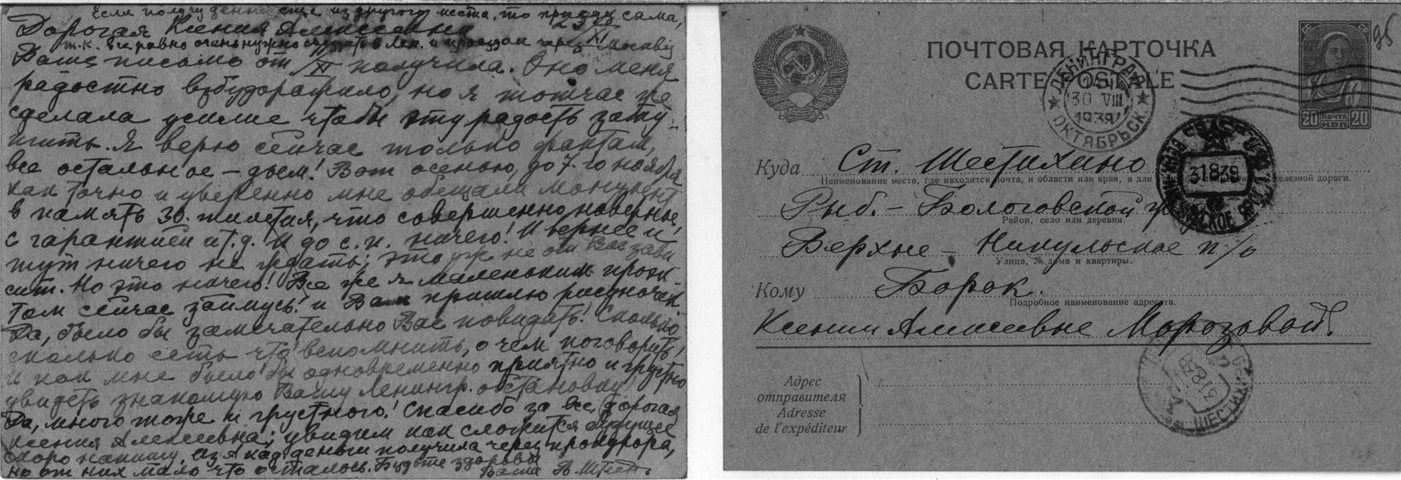 Если получу денег еще из другого места, то приеду сама,
Дорогая Ксения Алексеевна 23/XI
т.к. все равно очень нужно съездить в Лен. и проездом через Москву
Ваше письмо от /XI получила. Оно меня
радостно взбударажило, но я тотчас же
сделала усилие чтобы эту радость зату-
шить. Я верю сейчас только фактам,
все остальное – дым! Вот осенью, до 7-го ноября
как точно и уверенно мне обещали монумент
в память 30-тилетия, что совершенно наверные,
с гарантией и т.д. И до с.п. ничего! И вернее и
тут ничего не ждать; это уж не от Вас зави
сит. Но это ничего! Все же я маленьким проэк-
том сейчас займусь! и Вам пришлю рисуночек.
Да, было бы замечательно Вас повидать! Сколько,
сколько есть что вспомнить, о чем поговорить,
и как мне было бы одновременно приятно и грустно
увидеть знакомую Вашу Ленингр. обстановку!
Да, много тоже и грустного! Спасибо за все, дорогая
Ксения Алексеевна; увидим как сложится будущее
скоро напишу. Аз. Акад. деньги получила через
но от них мало что осталось. Будьте здоровы
Ваша В.
ПОЧТОВАЯ КАРТОЧКА
CARTE POSTALE
ЛЕНИНГРАД
30 VIII
1939
ОКТЯБРЬСК
20 ПОЧТА 20
Куда Ст. Шестихино
Наименование места, где находится почта, и области или края, и для железной дороги.
Рыб.- Бологовской
Район, село или деревня.
31 8 39
Верхне – Никульское п/о
Улица, № дома и квартиры.
Кому Борок.
Подробное наименование адресата.
Ксении Алексеевне Морозовой.
Адрес
отправителя
Adresse
de l'expéditeur
31 8 39
ШЕСТИХ